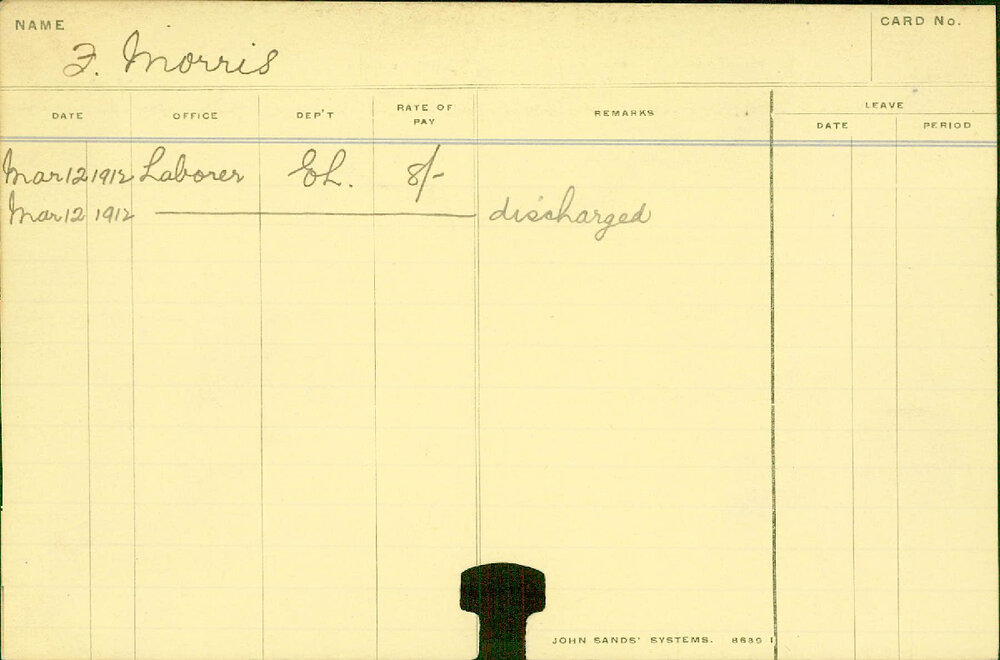 NAME
CARD No.
F. Morris
DATE OFFICE DEP'T RATE OF PAY REMARKS LEAVE
DATE PERIOD
Mar 12 1912 Laborer EL. 8/-
Mar 12 1912 discharged
JOHN SANDS' SYSTEMS.